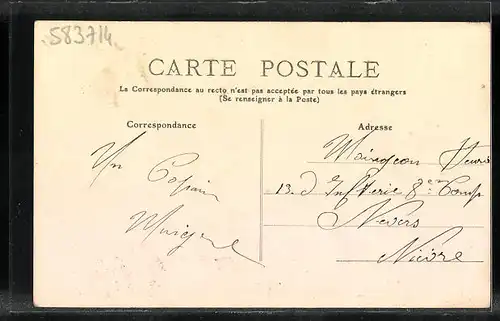 583714
CARTE POSTALE
La Correspondance au recto n'est pas acceptée par tous les pays étrangers
(Se renseigner à la Poste)
Correspondance
Adresse
Un Copain
13. d Infterie 8em Comp
Nevers
Nièvre